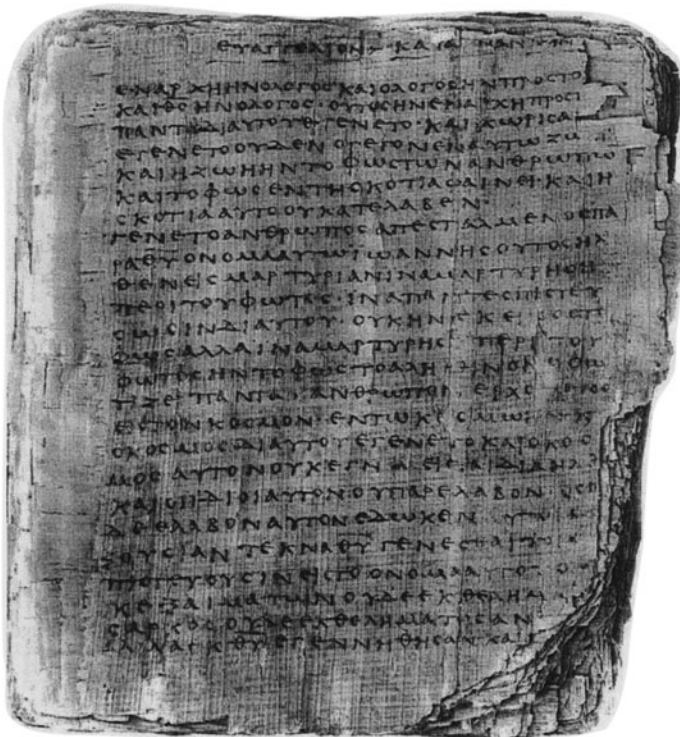 ΕΥΑΓΓΕΛΙΟΝ ΚΑΤΑ
ΕΝΑΡΧΗΗΝΟΛΟΓΟϹΚΑΙΟΛΟΓΟϹΗΝΠΡΟϹΤΟ
ΚΑΙΘϹΗΝΟΛΟΓΟϹ·ΟΥΤΟϹΗΝΕΝΑΡΧΗΠΡΟϹ
ΠΑΝΤΑΔΙΑΥΤΟΥΕΓΕΝΕΤΟ·ΚΑΙΧΩΡΙϹΑ
ΕΓΕΝΕΤΟΟΥΔΕΝΟΓΕΓΟΝΕΝΑΥΤΩΖΩ
ΚΑΙΗΖΩΗΗΝΤΟΦΩϹΤΩΝΑΝΘΡΩΠΩ
ΚΑΙΤΟΦΩϹΕΝΤΗϹΚΟΤΙΑΦΑΙΝΕΙ·ΚΑΙΗ
ϹΚΟΤΙΑΑΥΤΟΟΥΚΑΤΕΛΑΒΕΝ·
ΕΓΕΝΕΤΟΑΝΘΡΩΠΟϹΑΠΕϹΤΑΛΜΕΝΟϹΠΑ
ΡΑΘΥΟΝΟΜΑΑΥΤΩΙΩΑΝΝΗϹΟΥΤΟϹΗΛ
ΘΕΝΕΙϹΜΑΡΤΥΡΙΑΝΙΝΑΜΑΡΤΥΡΗϹΗ
ΠΕΡΙΤΟΥΦΩΤΟϹ·ΙΝΑΠΑΝΤΕϹΠΙϹΤΕΥ
ϹΩϹΙΝΔΙΑΥΤΟΥ·ΟΥΚΗΝΕΚΕΙΝΟϹΤΟ
ΦΩϹΑΛΛΑΙΝΑΜΑΡΤΥΡΗϹΗΠΕΡΙΤΟΥ
ΦΩΤΟϹΗΝΤΟΦΩϹΤΟΑΛΗΘΙΝΟΝΟΦΩ
ΤΙΖΕΙΠΑΝΤΑΑΝΘΡΩΠΟΝΕΡΧΟΜΕΝΟΝ
ΕΙϹΤΟΝΚΟϹΜΟΝ·ΕΝΤΩΚΟϹΜΩΗΝΚΑΙ
ΟΚΟϹΜΟϹΔΙΑΥΤΟΥΕΓΕΝΕΤΟΚΑΙΟΚΟϹ
ΜΟϹΑΥΤΟΝΟΥΚΕΓΝΩΕΙϹΤΑΙΔΙΑΗΛΘ
ΚΑΙΟΙΙΔΙΟΙΑΥΤΟΝΟΥΠΑΡΕΛΑΒΟΝ·ΟϹΟΙ
ΔΕΕΛΑΒΟΝΑΥΤΟΝΕΔΩΚΕΝΑΥΤΟΙϹ
ΟΥϹΙΑΝΤΕΚΝΑΘΥΓΕΝΕϹΘΑΙΤΟΙϹ
ΠΙϹΤΕΥΟΥϹΙΝΕΙϹΤΟΟΝΟΜΑΑΥΤΟΥΟΙ
ΚΕΞΑΙΜΑΤΩΝΟΥΔΕΕΚΘΕΛΗΜΑ
ϹΑΡΚΟϹΟΥΔΕΕΚΘΕΛΗΜΑΤΟϹΑΝ
ΑΛΛΑΕΚΘΥΕΓΕΝΝΗΘΗϹΑΝΚΑΙ